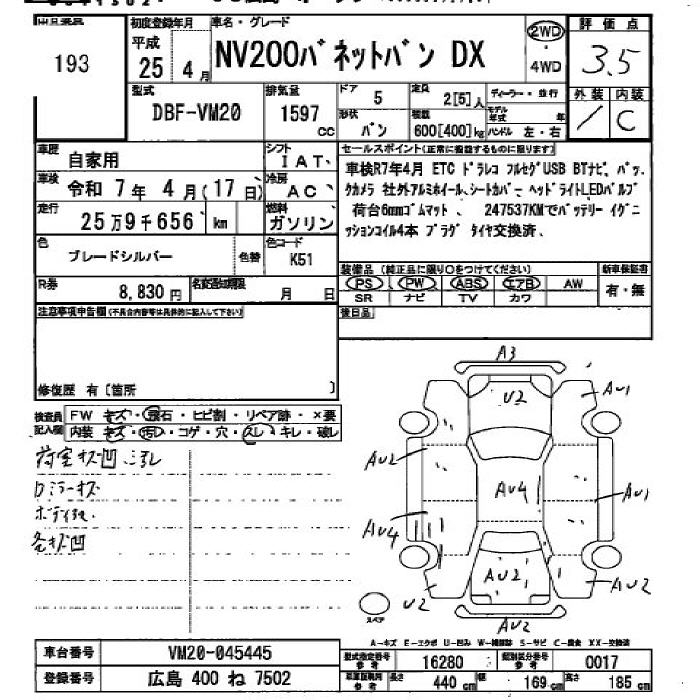 初度登録年月
車名・グレード
評価点
193
平成
25年 4月
NV200バネットバン DX
2WD
・
4WD
3.5
型式
排気量
ドア
定員
ディーラー・並行
外装
内装
DBF-VM20
1597
cc
5
2[5]人
モデル年式 年
形状
積載
バン
600[400]kg
ハンドル 左・右
C
車歴
自家用
シフト
IAT
セールスポイント(正常に機能するものに限ります)
車検
令和 7年 4月(17日)
冷房
AC
車検R7年4月 ETC ドラレコ フルセグUSB BTナビ、バッ
クカメラ 社外アルミホイール、シートカバー ヘッドライトLEDバルブ
走行
25万9千656 km
燃料
ガソリン
荷台6mmゴムマット 、 247537KMでバッテリー イグニ
ッションコイル4本 プラグ タイヤ交換済、
色
ブレードシルバー
色替
色コード
K51
装備品(純正品に限り○をつけてください)
新車保証書
R券
8,830円
名変通知期限
月 日
PS PW ABS エアB AW
有・無
SR ナビ TV カワ
注意事項申告欄(不具合内容等は具体的に記入して下さい)
後日品
修復歴 有〔箇所 〕
検査員
記入欄
FW キズ・飛石・ヒビ割・リペア跡・×要
内装 キズ・汚れ・コゲ・穴・スレ・キレ・破レ
荷室キズ凹
ミラーキズ
各キズ凹
A3
U2
AU1
AU2
AU4
AU1
AU4
AU2
AU2
U2
AU2
スペア
A-キズ E-エクボ U-凹み W-補修跡 S-サビ C-腐食 XX-交換済
車台番号
VM20-045445
型式指定番号
参考
16280
類別区分番号
参考
0017
登録番号
広島 400 ね 7502
参考
長さ
440 cm
幅
169 cm
高さ
185 cm